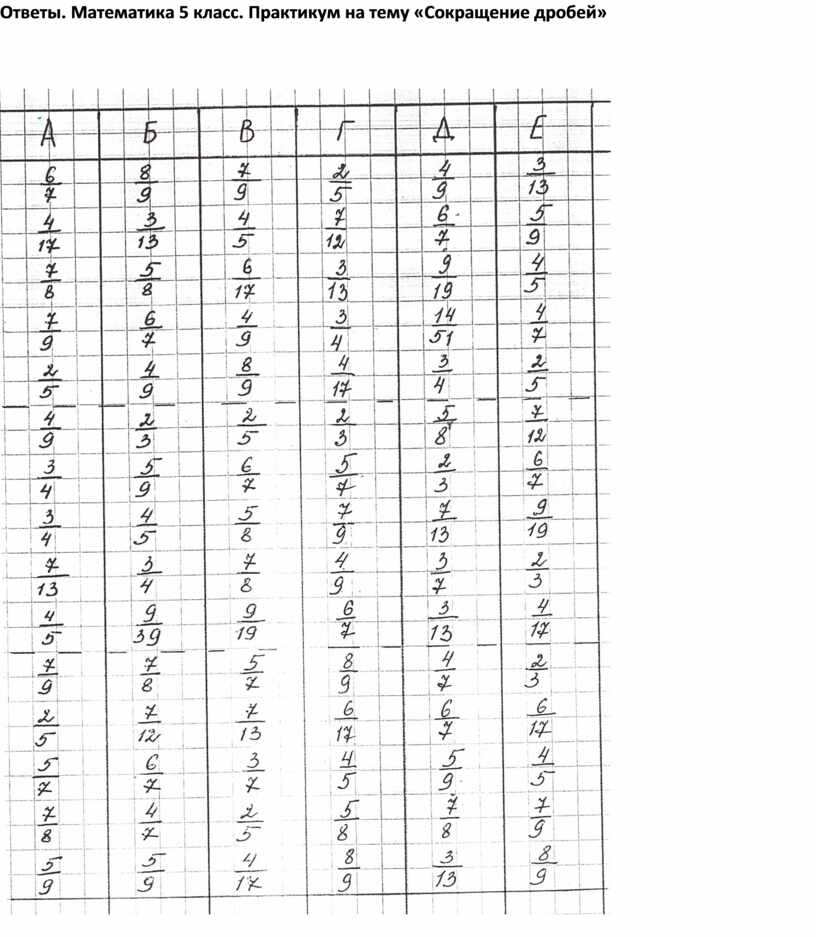 Ответы. Математика 5 класс. Практикум на тему «Сокращение дробей»
А Б В Г Д Е
6/7 8/9 7/9 2/5 4/9 3/13
4/17 3/13 4/5 7/12 6/7 5/9
7/8 5/8 6/17 3/13 9/19 4/5
7/9 6/7 4/9 3/4 14/51 4/7
2/5 4/9 8/9 4/17 3/4 2/5
4/9 2/3 2/5 2/3 5/8 7/12
3/4 5/9 6/7 5/7 2/3 6/7
3/4 4/5 5/8 7/9 7/13 9/19
7/13 3/4 7/8 4/9 3/7 2/3
4/5 9/39 9/19 6/7 3/13 4/17
7/9 7/8 5/7 8/9 4/7 2/3
2/5 7/12 7/13 6/17 6/7 6/17
5/7 6/7 3/7 4/5 5/9 4/5
7/8 4/7 2/5 5/8 7/8 7/9
5/9 5/9 4/17 8/9 3/13 8/9